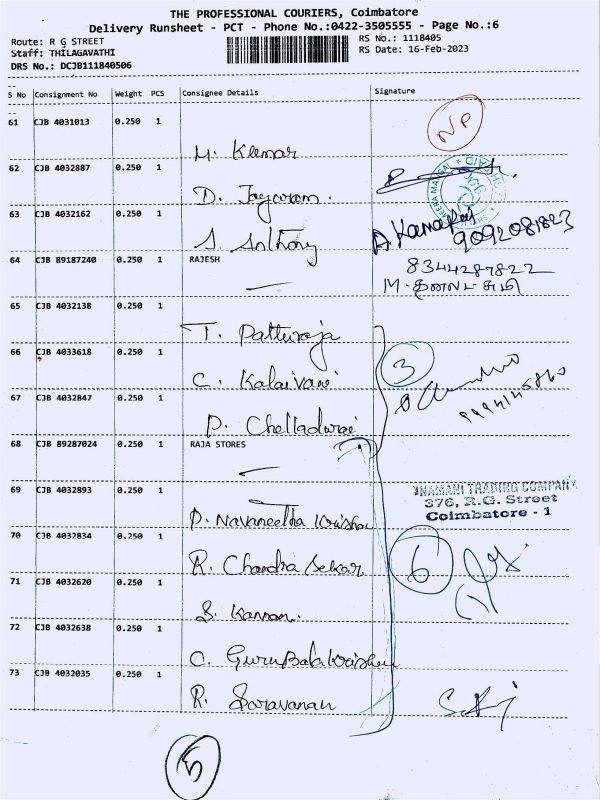 THE PROFESSIONAL COURIERS, Coimbatore
Delivery Runsheet - PCT - Phone No.:0422-3505555 - Page No.:6
Route: R G STREET
Staff: THILAGAVATHI
DRS No.: DCJB111840506
RS No.: 1118405
RS Date: 16-Feb-2023
S No Consignment No Weight PCS Consignee Details Signature
61 CJB 4031013 0.250 1
NP
M. Kumar
62 CJB 4032887 0.250 1
D. Jayaram.
63 CJB 4032162 0.250 1
A. Kanaka
9092081823
S. Anthony
64 CJB 89187240 0.250 1 RAJESH
8344287822
M.
65 CJB 4032138 0.250 1
T. Patturaja
66 CJB 4033618 0.250 1
3
C. Kalaivani
67 CJB 4032847 0.250 1
P. Chelladurai
68 CJB 89287024 0.250 1 RAJA STORES
69 CJB 4032893 0.250 1
UNAMANI TRADING COMPANY
376, R.G. Street
Coimbatore - 1
P. Navaneetha krishna
70 CJB 4032834 0.250 1
6
R. Chandra Sekar
71 CJB 4032620 0.250 1
S. Kannan.
72 CJB 4032638 0.250 1
C. GuruBalakrishnan
73 CJB 4032035 0.250 1
R. Saravanan
5